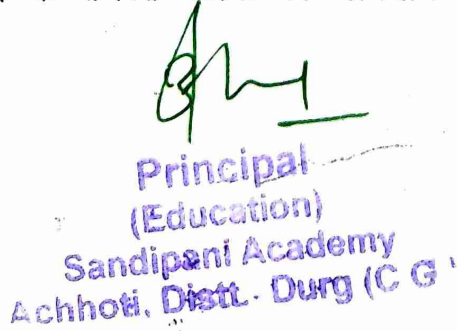 Principal
(Education)
Sandipani Academy
Achhoti, Distt. Durg (C G